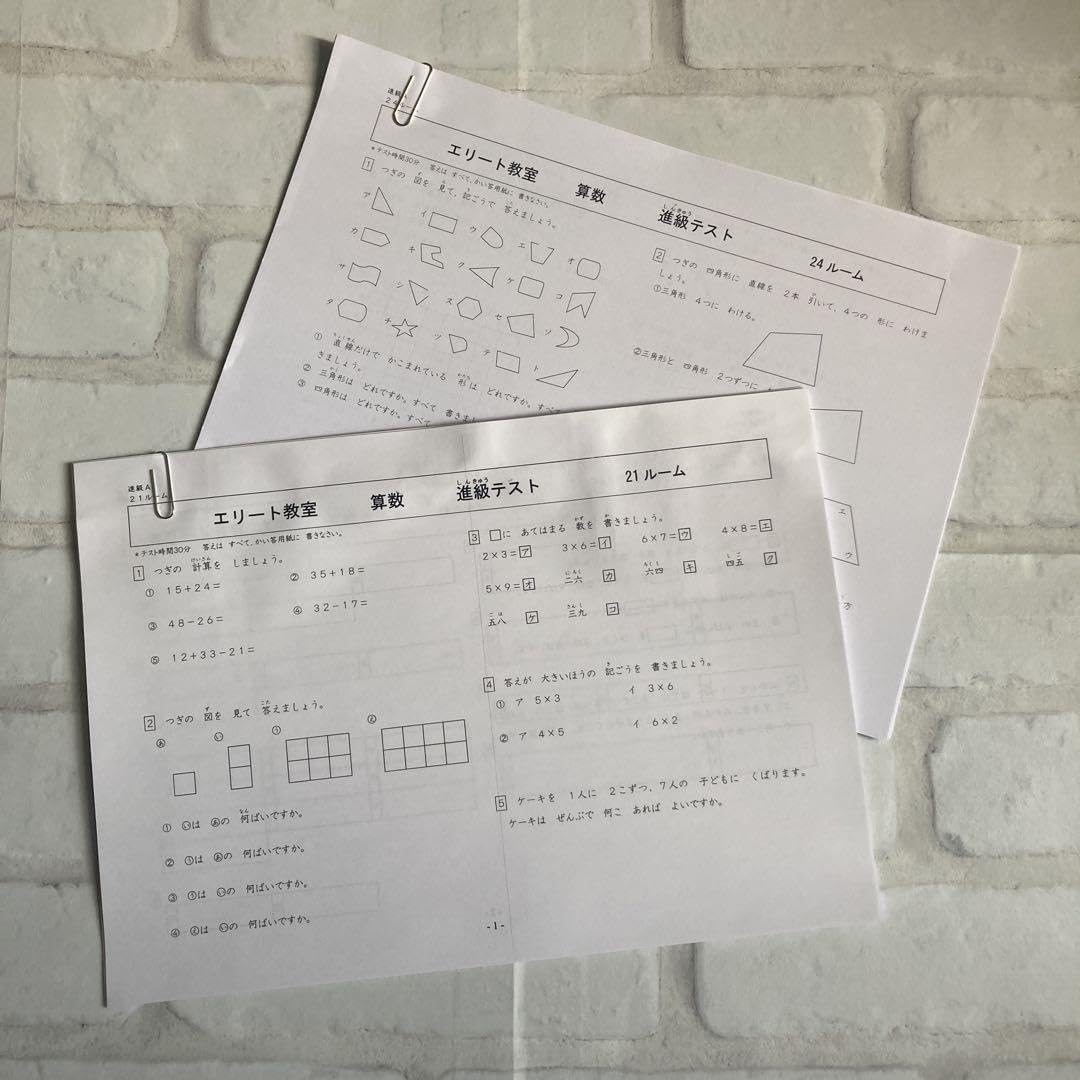 進級A
24ルーム
エリート教室 算数 進級テスト 24ルーム
しんきゅう
*テスト時間30分 答えは すべて、かい答用紙に 書きなさい。
1 つぎの 図を 見て、記ごうで 答えましょう。
ア イ ウ エ オ
カ キ ク ケ コ
サ シ ス セ ソ
タ チ ツ テ ト
① 直線だけで かこまれている 形は どれですか。すべ
きましょう。
② 三角形は どれですか。すべて 書きま
③ 四角形は どれですか。すべて
2 つぎの 四角形に 直線を 2本 引いて、4つの 形に わけま
しょう。
①三角形 4つに わける。
②三角形と 四角形 2つずつに
エ
ウ
方
進級A
21ルーム
エリート教室 算数 進級テスト 21ルーム
しんきゅう
*テスト時間30分 答えは すべて、かい答用紙に 書きなさい。
1 つぎの 計算を しましょう。
けいさん
① 15+24=
② 35+18=
③ 48-26=
④ 32-17=
⑤ 12+33-21=
2 つぎの 図を 見て 答えましょう。
ず こた
あ い う え
① いは あの 何ばいですか。
なん
② うは あの 何ばいですか。
③ うは いの 何ばいですか。
④ えは いの 何ばいですか。
3 □に あてはまる 数を 書きましょう。
かず か
2×3=ア 3×6=イ 6×7=ウ 4×8=エ
5×9=オ 二六 カ 六四 キ 四五 ク
にろく ろくし しご
五八 ケ 三九 コ
ごは さんく
4 答えが 大きいほうの 記ごうを 書きましょう。
き
① ア 5×3 イ 3×6
② ア 4×5 イ 6×2
5 ケーキを 1人に 2こずつ、7人の 子どもに くばります。
ケーキは ぜんぶで 何こ あれば よいですか。
-1-